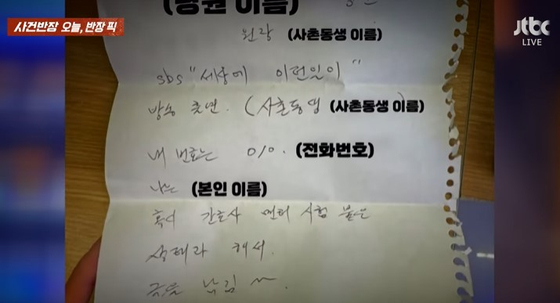 사건반장 오늘, 반장 픽
jtbc
LIVE
(창원 이름)
원장 (사촌동생 이름)
sbs "세상에 이런일이"
방송 출연. (사촌동생 (사촌동생 이름)
내 번호는 010. (전화번호)
나는 (본인 이름)
혹시 간호사 면허 시험 붙은
상태라 해서.
글을 남김 ~